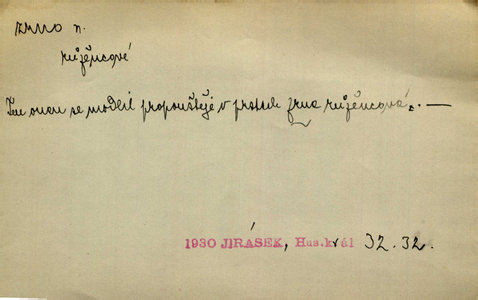 zrno n.
růžencové
Ten onen se modlil propouštěje v prstech zrna růžencová. —
1930 JIRÁSEK, Hus.král 32. 32.